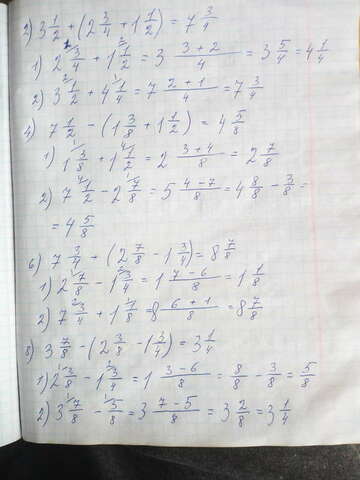 2) 3 1/2 + (2 3/4 + 1 1/2) = 7 3/4
1) 2 3/4 + 1 1/2 = 3 (3+2)/4 = 3 5/4 = 4 1/4
2) 3 1/2 + 4 1/4 = 7 (2+1)/4 = 7 3/4
4) 7 1/2 - (1 3/8 + 1 1/2) = 4 5/8
1) 1 3/8 + 1 1/2 = 2 (3+4)/8 = 2 7/8
2) 7 1/2 - 2 7/8 = 5 (4-7)/8 = 4 8/8 - 3/8 =
= 4 5/8
6) 7 3/4 + (2 7/8 - 1 3/4) = 8 7/8
1) 2 7/8 - 1 3/4 = 1 (7-6)/8 = 1 1/8
2) 7 3/4 + 1 1/8 = 8 (6+1)/8 = 8 7/8
8) 3 7/8 - (2 3/8 - 1 3/4) = 3 1/4
1) 2 3/8 - 1 3/4 = 1 (3-6)/8 = 8/8 - 3/8 = 5/8
2) 3 7/8 - 5/8 = 3 (7-5)/8 = 3 2/8 = 3 1/4